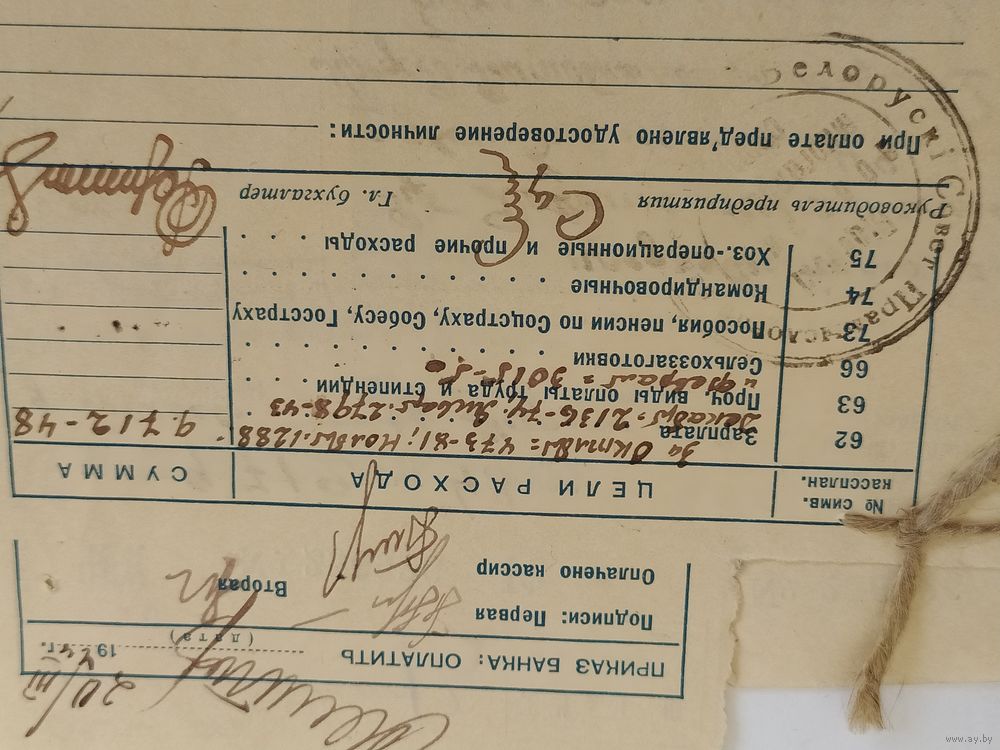 ПРИКАЗ БАНКА: ОПЛАТИТЬ 19 44 г.
20/III
(дата)
Подписи: Первая Вторая
Оплачено кассир
№ симв. кассплан. ЦЕЛИ РАСХОДА СУММА
62 Зарплата За Октябрь = 473-81; Ноябрь. 1288 9.712-48
Декабрь. 2136-74, Январь. 2798-43
63 Проч. виды оплаты труда и стипендии
и Февраль = 3015-50
66 Сельхоззаготовки
73 Пособия, пенсии по Соцстраху, Собесу, Госстраху
74 Командировочные
75 Хоз.-операционные и прочие расходы
Руководитель предприятия Гл. бухгалтер
При оплате пред'явлено удостоверение личности:
Белорускі Совет
www.ay.by